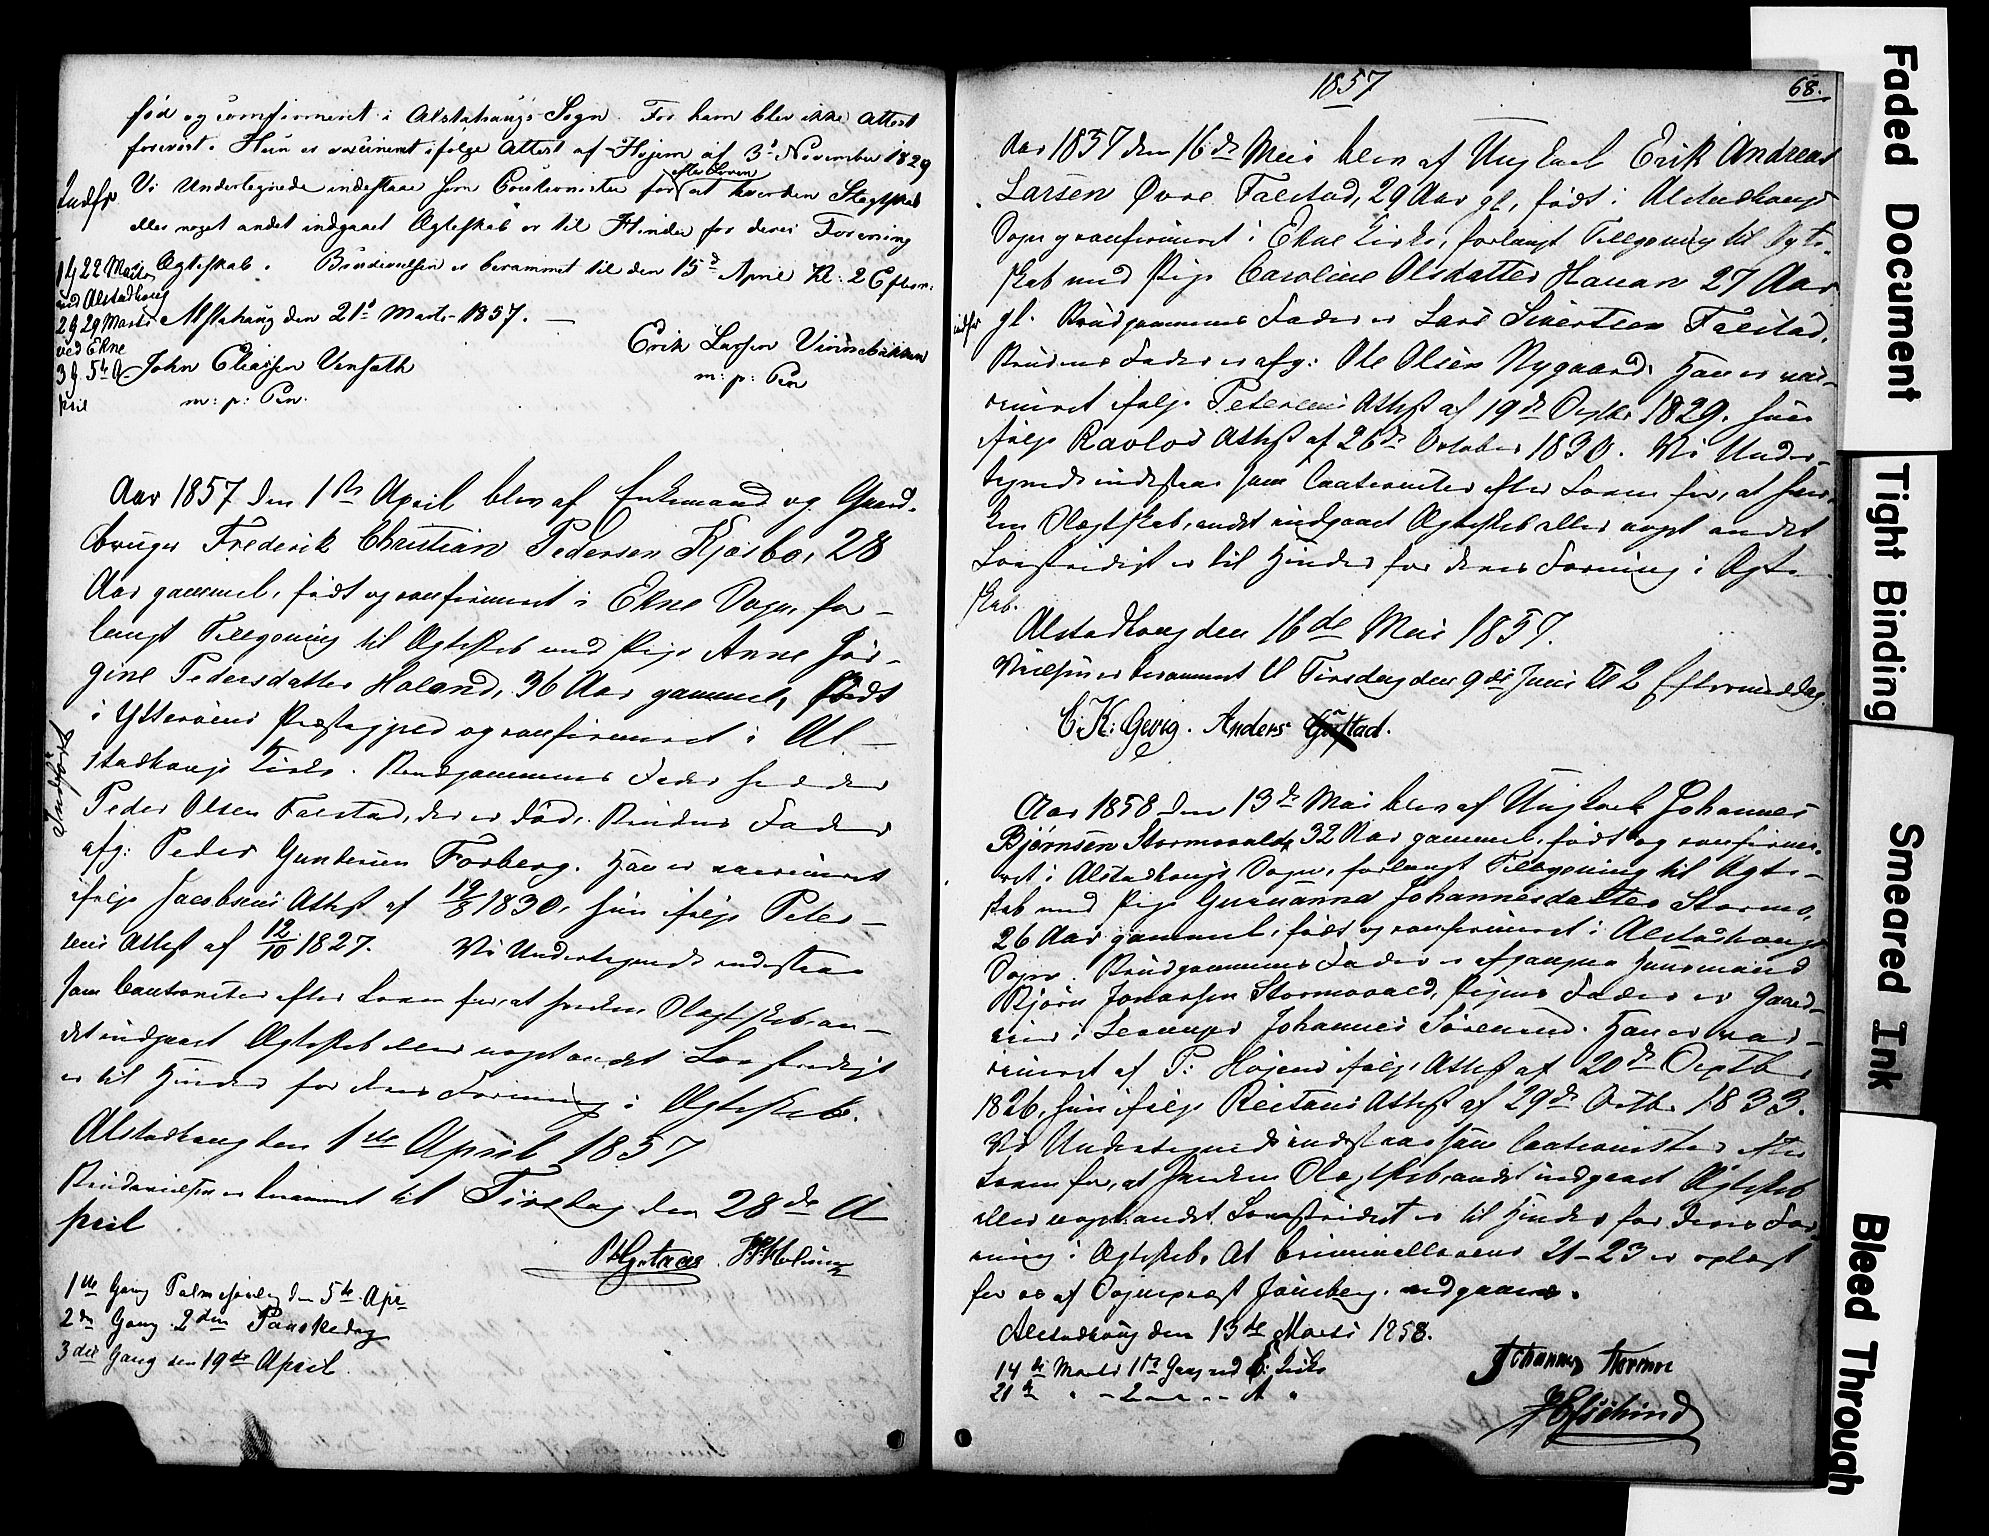 fød og confirmeret i Alstahaugs Sogn. For ham blev ikke Attest
forevist. Hun er vaccineret ifølge Attest af Hojem af 3d November 1829
Vi Undertegnede indestaae som Cautionister efter Loven for at hverken Slegtskab
eller noget andet indgaaet Ægteskab er til Hinder for deres Forening
i Ægteskab. Brudevielsen er berammet til den 15d April Kl: 2 Efterm:
Alstahaug den 21d Marts 1857.
Erik Larsen
m: p: Pen
John Eliassen
m: p: Pen.
Indfr
1 G 22 Marts
ved Alstadhaug
2 G 29 Marts
ved Ekne
3 G 5te A-
pril
Aar 1857 den 1ste April blev af Enkemand og Gaard-
bruger Frederik Christian Pedersen Kjøsbo, 28
Aar gammel, født og confirmeret i Ekne Sogn, for-
langt Tillysning til Ægteskab med Pige Anne Jør-
gine Pedersdatter Holand, 36 Aar gammel, født
i Ytterøens Præstegjeld og confirmeret i Al-
stadhougs Kirke. Brudgommens Fader hed
Peder Olsen Falstad, der er død, Brudens Fader
afg: Peder Gundersen Forberg. Han er vaccineret
ifølge Jacobsens Attest af 12/8 1830, hun ifølge Peter-
sens Attest af 12/10 1827. Vi Undertegnede indestaae
som Cautionister efter Loven for, at hverken Slægtskab, an-
det indgaaet Ægteskab eller noget andet Lovstridigt
er til Hinder for deres Forening i Ægteskab.
Alstadhoug den 1ste April 1857
Brudevielsen er berammet til Tirsdag den 28de A-
pril
1ste Gang Palmesøndag den 5te Apr
2den Gang 2den Paaskedag
3die Gang den 19de April.
1857
68.
Aar 1857 den 16de Mai blev af Ungkarl Erik Andreas
Larsen Øvre Falstad, 29 Aar gl, født i Alstadhougs
Sogn og confirmeret i Ekne Kirke, forlangt Tillysning til Ægte-
skab med Pige Caroline Olsdatter Hauan 27 Aar
gl. Brudgommens Fader er Lars Sivertsen Falstad,
Brudens Fader er afg: Ole Olsen Nygaard. Han er vac-
cineret ifølge Petersens Attest af 19de Septbr 1829, hun
ifølge Ravlos Attest af 26de October 1830. Vi Under-
tegnede indestaae som Cautionister efter Loven for, at hver-
ken Slægtskab, andet indgaaet Ægteskab eller noget andet
Lovstridigt er til Hinder for deres Forening i Ægte-
skab.
Alstadhoug den 16de Mai 1857.
Vielsen er berammet til Tirsdag den 9de Juni Kl 2 Eftermiddag.
C. K: Gevig. Anders
Aar 1858 den 13de Mai blev af Ungkarl Johannes
Bjørnsen Stormovald, 32 Aar gammel, født og confirme-
ret i Alstadhougs Sogn, forlangt Tillysning til Ægte-
skab med Pige Gurianna Johannesdatter Stormo,
26 Aar gammel, født og confirmeret i Alstadhougs
Sogn. Brudgommens Fader er afgangne Huusmand
Bjørn Jonassen Stormovald, Pigens Fader er Gaard-
mand i Johannes Sørensen. Han er vac-
cineret af P: Hojem ifølge Attest af 20de Septbr
1826, hun ifølge Reitans Attest af 29de Octbr 1833.
Vi Undertegnede indestaae som Cautionister efter
Loven for, at hverken Slægtskab, andet indgaaet Ægteskab
eller noget andet Lovstridigt er til Hinder for deres For-
ening i Ægteskab. At Criminallovens 21-23 er oplæst
for os af Sognepræst vedgaaes.
Alstadhoug den 13de Marts 1858.
14de Marts 1ste Gang ved E: Kirke
21de " - 2den - - A "
Faded Document
Tight Binding
Smeared Ink
Bleed Through